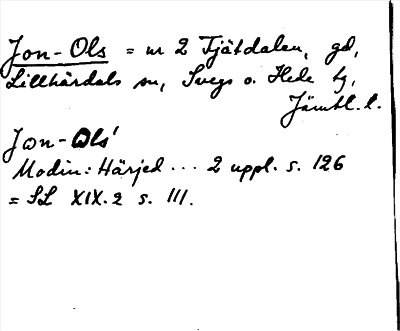 Jon-Ols = nr 2 Tjätdalen, gd,
Lillhärdals sn, Svegs o. Hede tg,
Jämtl. l.
Jon-Ols'
Modin: Härjed ... 2 uppl. s. 126
= SL XIX.2 s. 111.